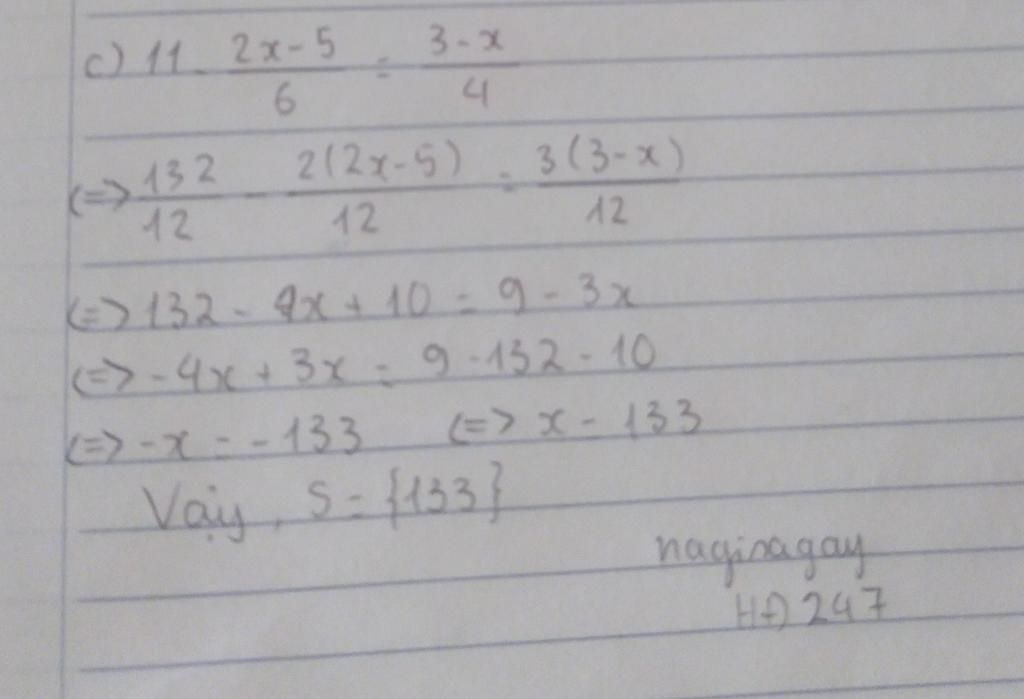 c) 11 - \frac{2x-5}{6} = \frac{3-x}{4}
<=> \frac{132}{12} - \frac{2(2x-5)}{12} = \frac{3(3-x)}{12}
<=> 132 - 4x + 10 = 9 - 3x
<=> -4x + 3x = 9 - 132 - 10
<=> -x = -133 <=> x = 133
Vậy, S = {133}
naginagay
HĐ 247